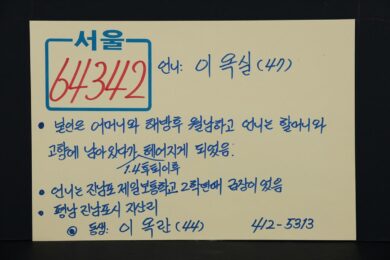 서울
64342
언니: 이옥실(47)
• 본인은 어머니와 해방후 월남하고 언니는 할머니와
고향에 남아 있다가 헤어지게 되었음.
1.4후퇴이후
• 언니는 진남포 제일보통학교 2학년때 급장이 었음
• 평남 진남포시 지산리
◉ 동생: 이옥란(44) 412-5313